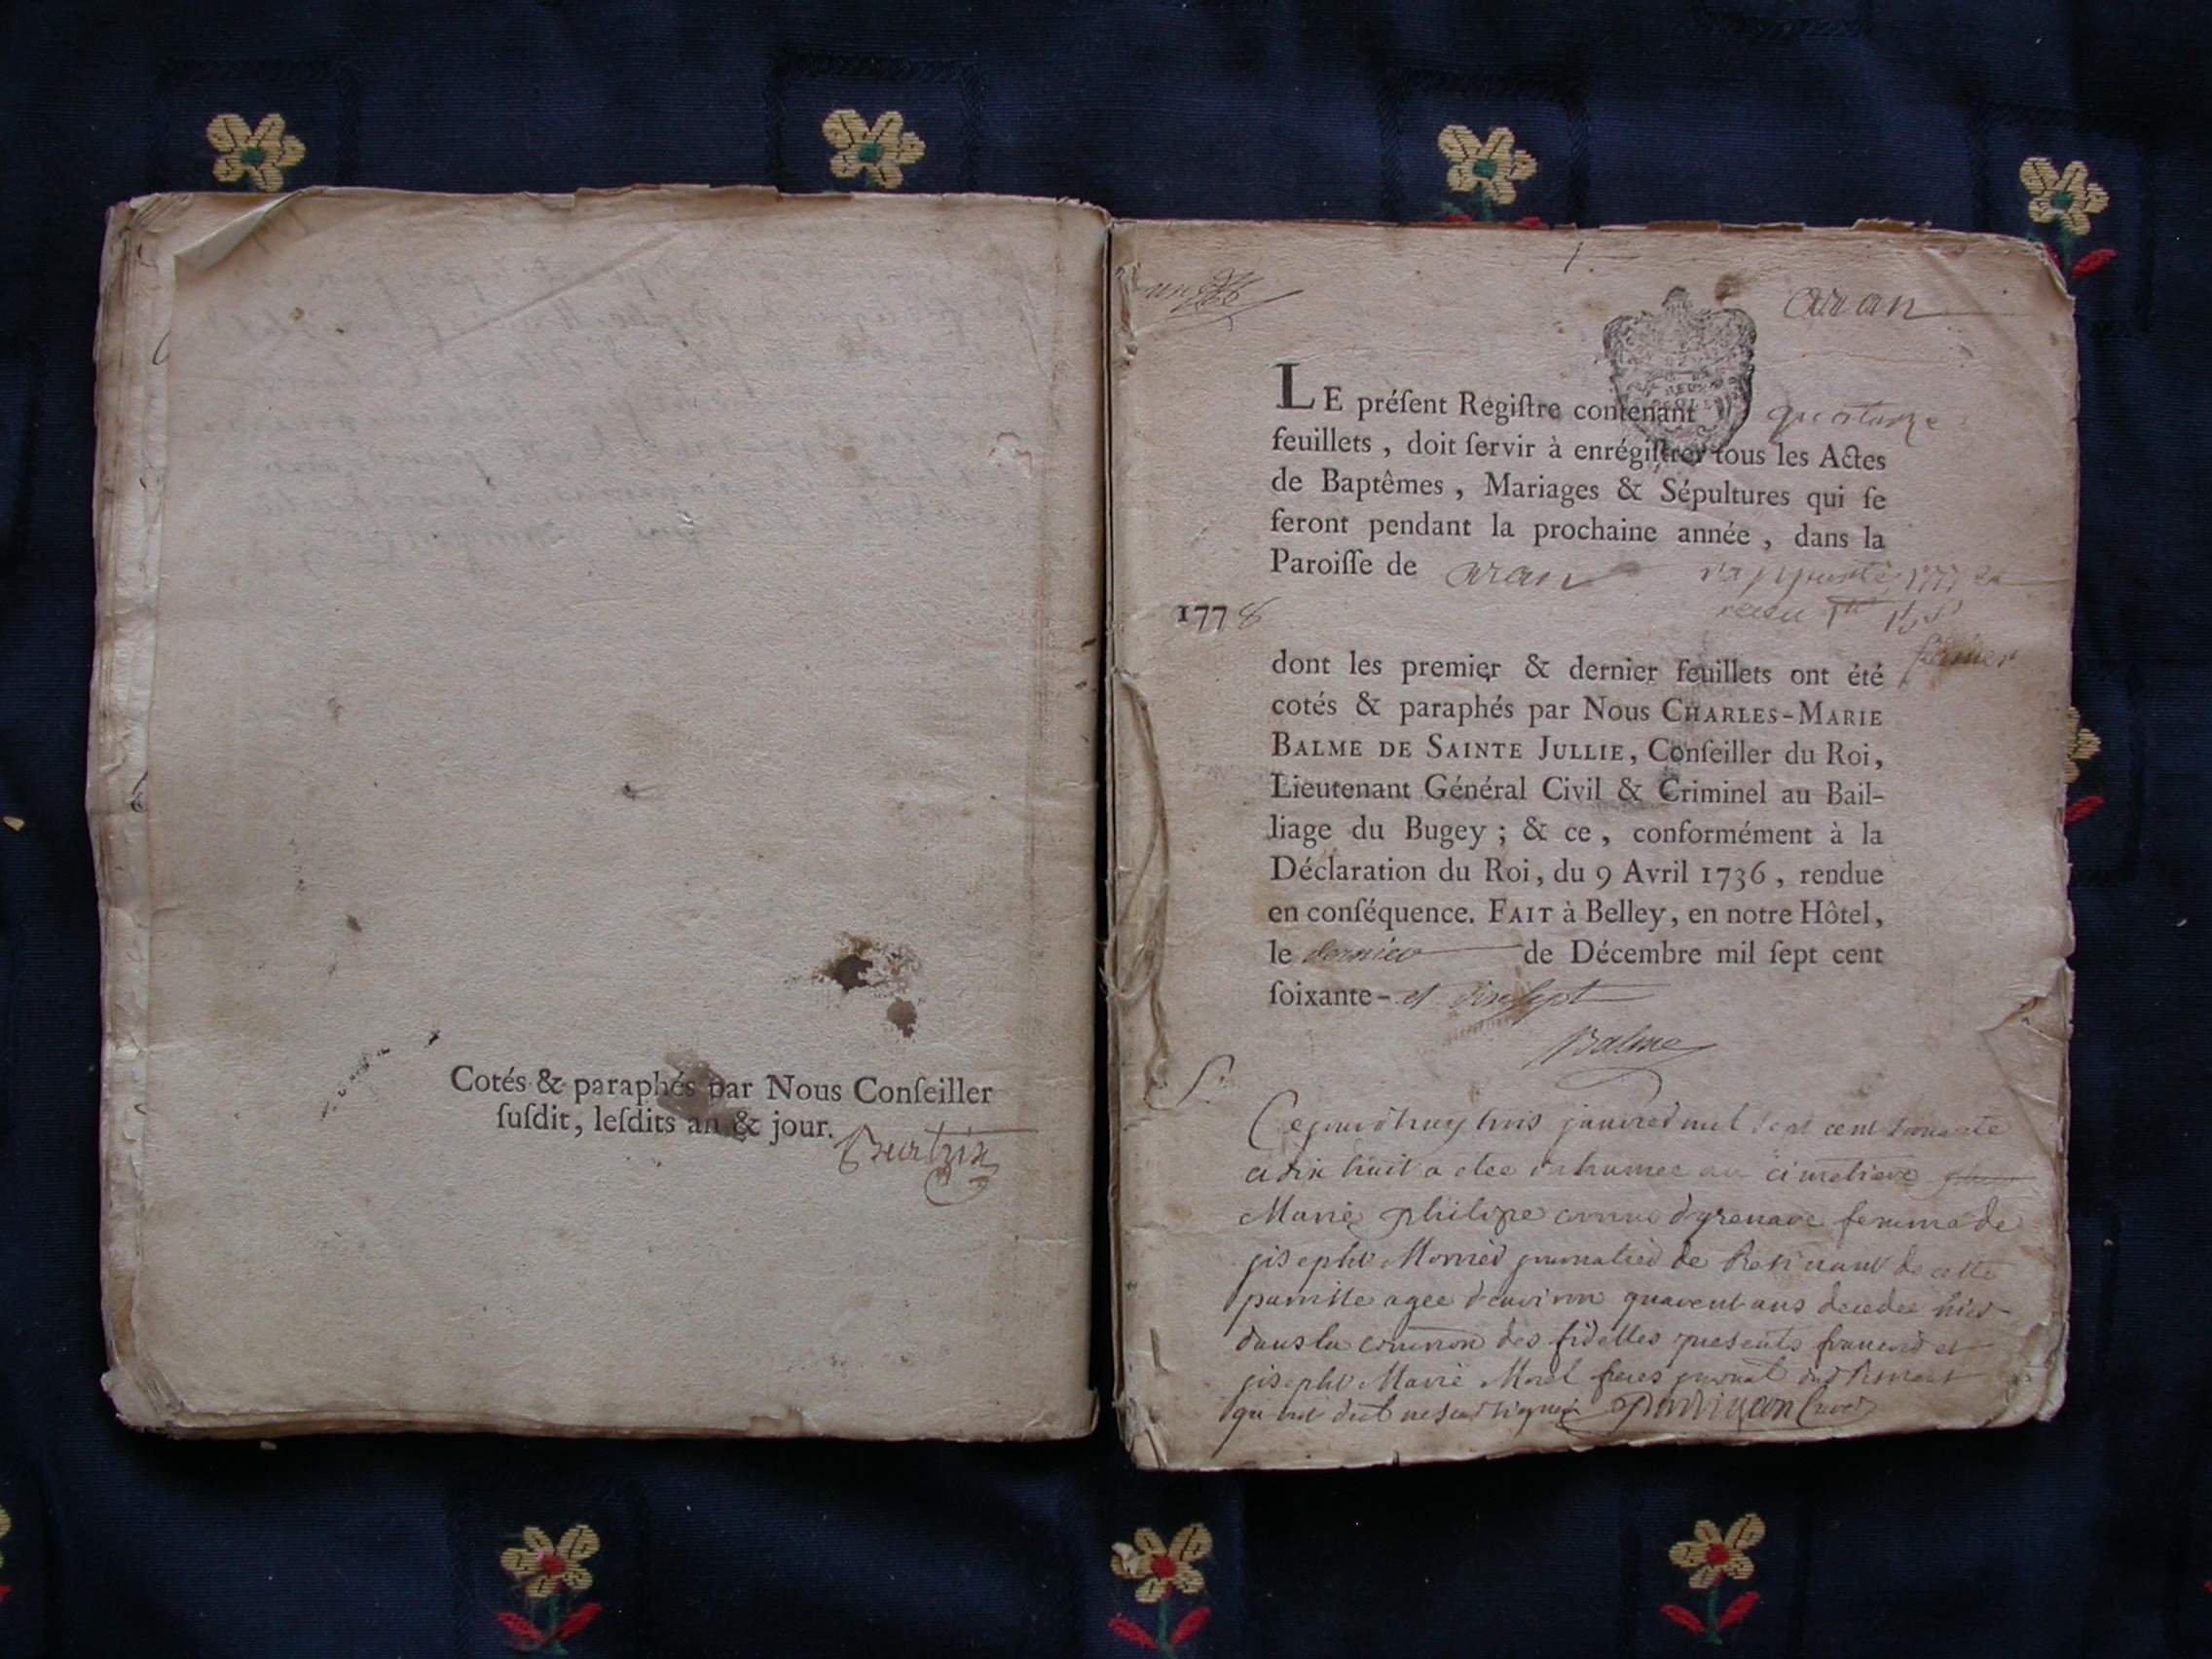 Cotés & paraphés par Nous Conſeiller
ſuſdit, leſdits an & jour.
aran
LE préſent Regiſtre contenant quatorze
feuillets, doit ſervir à enrégiſtrer tous les Actes
de Baptêmes, Mariages & Sépultures qui ſe
feront pendant la prochaine année, dans la
Paroiſſe de aran
1778
dont les premier & dernier feuillets ont été
cotés & paraphés par Nous CHARLES-MARIE
BALME DE SAINTE JULLIE, Conſeiller du Roi,
Lieutenant Général Civil & Criminel au Bail-
liage du Bugey; & ce, conformément à la
Déclaration du Roi, du 9 Avril 1736, rendue
en conſéquence. FAIT à Belley, en notre Hôtel,
le dernier de Décembre mil ſept cent
ſoixante- et dixsept
Balme
S.
Cejourdhuy trois janvier mil sept cent soixante
et dix huit a etee inhumee au cimetiere
Marie philipe d'yzenave femme de
joseph Mornier journalier de Resinand de cette
paroisse agee d'environ quarent ans decedee hier
dans la comunion des fidelles presents francois et
joseph Marie Morel freres
qui ont dit ne scav signer